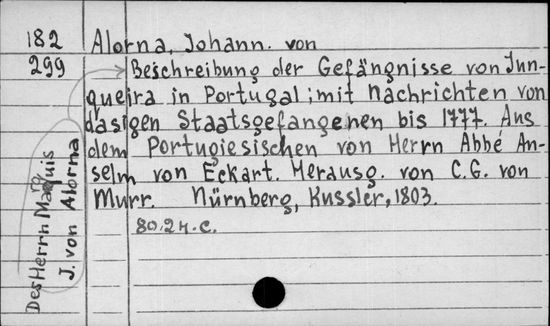 182 Alorna, Johann. von
299 Beschreibung der Gefängnisse von Jun-
queira in Portugal; mit Nachrichten von
dasigen Staatsgefangenen bis 1777. Aus
dem Portugiesischen von Herrn Abbé An-
selm von Eckart. Herausg. von C.G. von
Murr. Nürnberg, Kussler, 1803.
80.2H.C.
Des Herrn Marquis
J. von Alorna